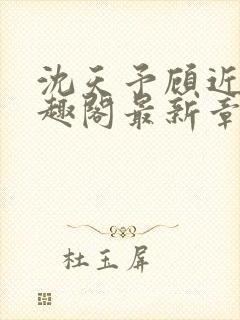 沈天予顾近
趣阁最新章
杜玉屏